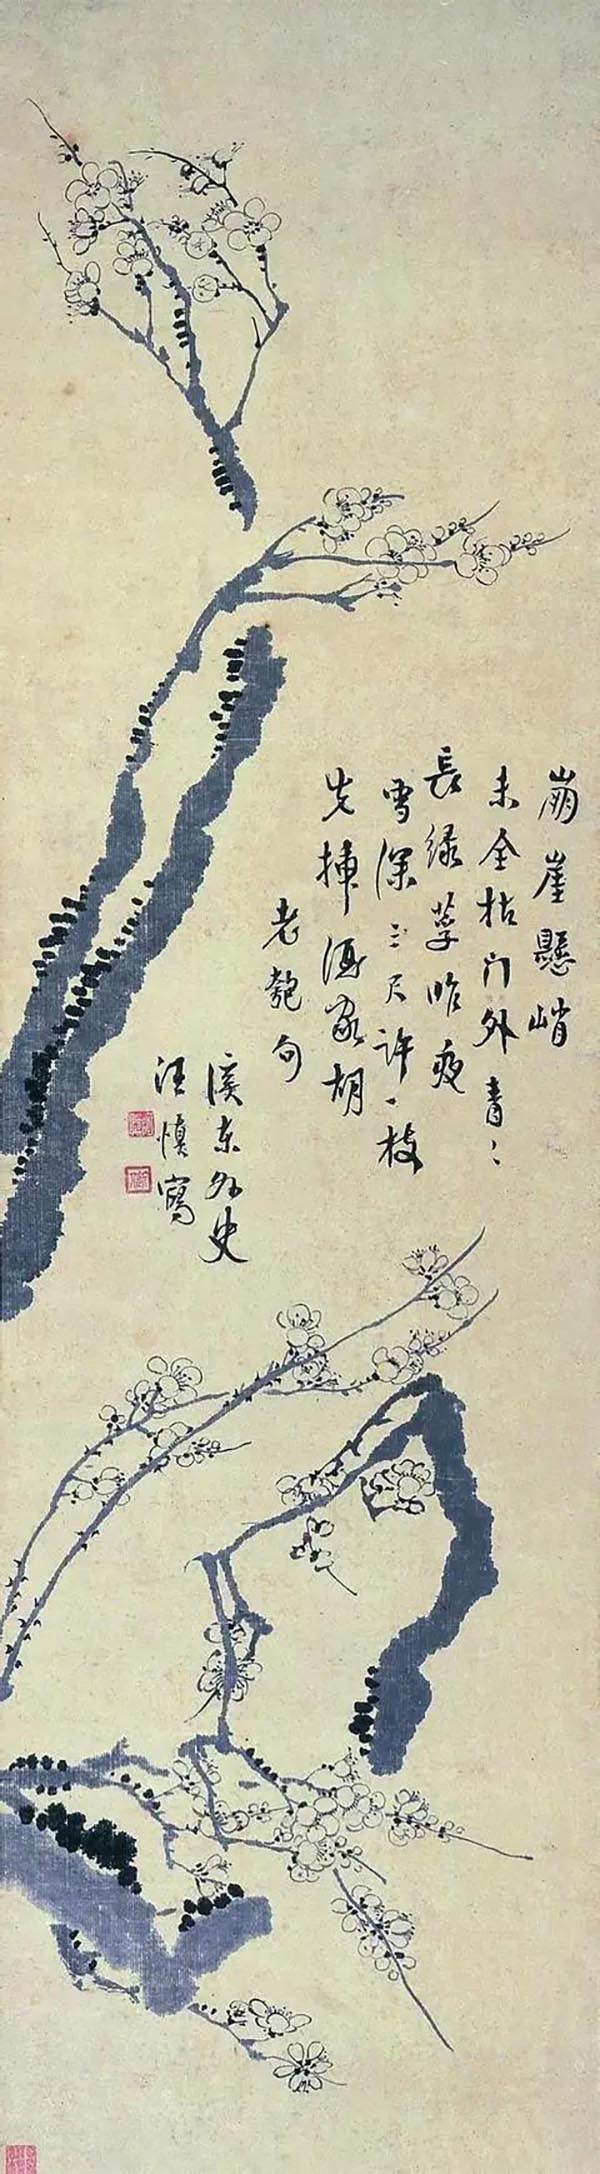 崩崖懸峭
未全枯门外青〻
長緑莩昨夜
雪深三尺許一枝
先揷酒家胡
老匏句
溪東外史
汪慎寫